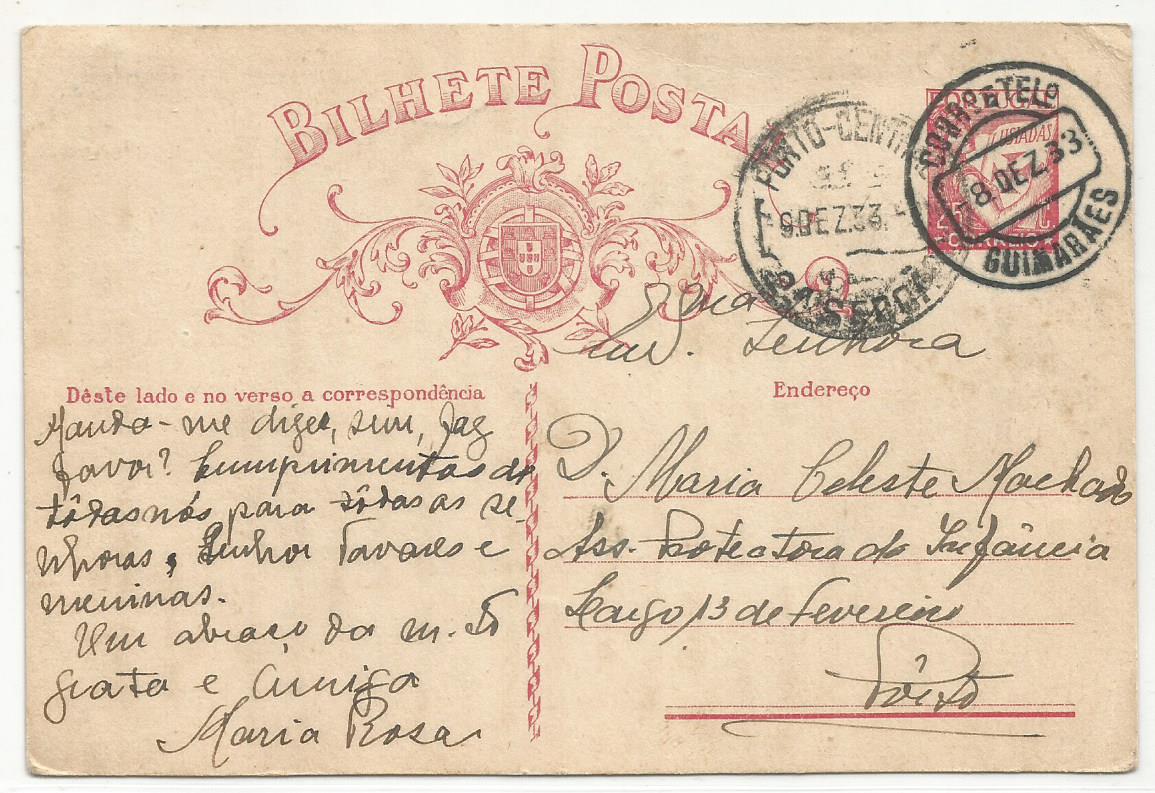 BILHETE POSTAL
PORTO-CENTRAL
9.DEZ.33
CORR.E TEL.
8.DEZ.33
GUIMARÃES
LUSIADAS
25 C
CORREIO
Dêste lado e no verso a correspondência
Manda-me dizer, sim, faz
favor? Cumprimentos de
tôdas nós para tôdas as se-
nhoras, Senhor Tavares e
meninas.
Um abraço da m.to
grata e amiga
Maria Rosa
Endereço
Senhora
D. Maria Celeste Machado
Ass. Protectora da Infância
Largo 13 de Fevereiro
Pôrto